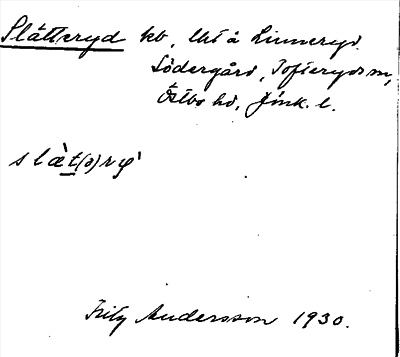 Slätteryd kb, Uti å Linneryd
Södergård, Tofteryds sn,
Östbo hd, Jönk. l.
slæ̀t(ə)ry
Fritz Andersson 1930.